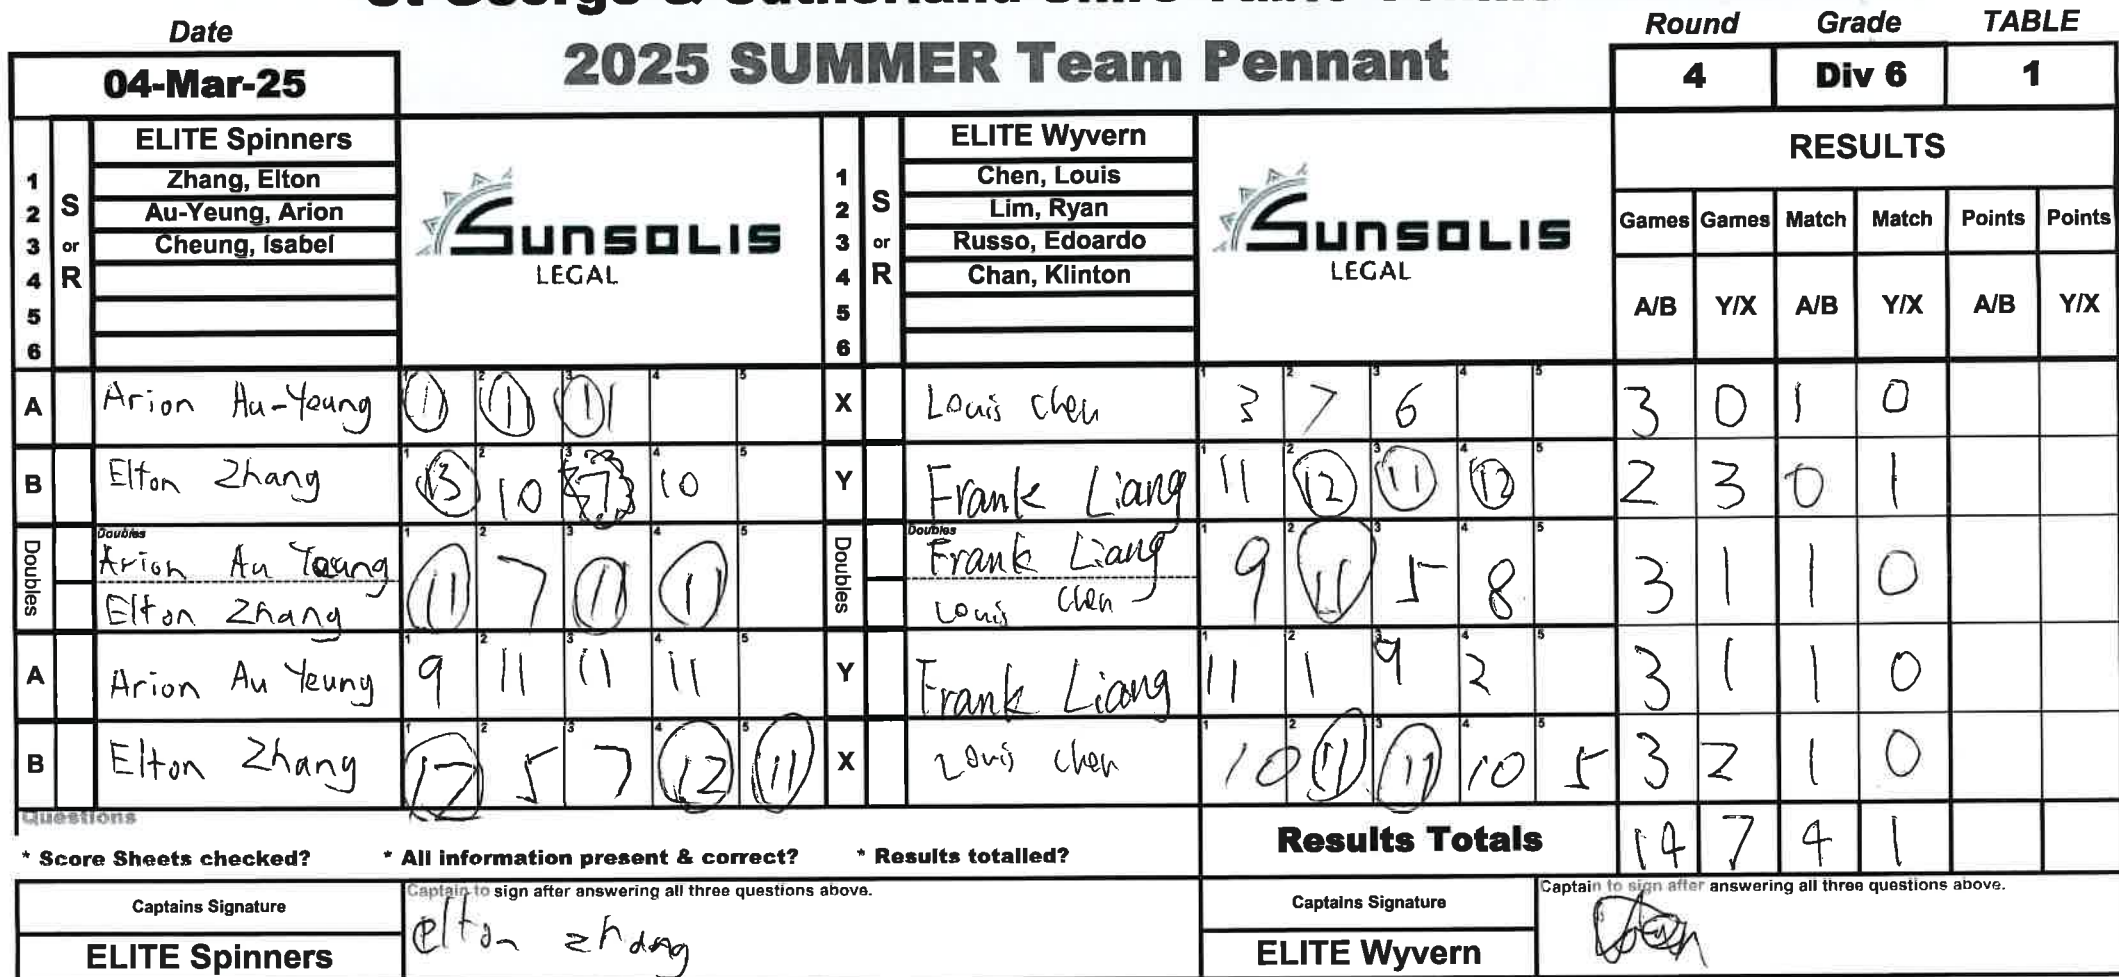 Date
04-Mar-25
2025 SUMMER Team Pennant
Round Grade TABLE
4 Div 6 1
1 2 3 4 5 6
S or R
ELITE Spinners
Zhang, Elton
Au-Yeung, Arion
Cheung, Isabel
SUNSOLIS
LEGAL
1 2 3 4 5 6
S or R
ELITE Wyvern
Chen, Louis
Lim, Ryan
Russo, Edoardo
Chan, Klinton
SUNSOLIS
LEGAL
RESULTS
Games Games Match Match Points Points
A/B Y/X A/B Y/X A/B Y/X
A Arion Au-Yeung 11 11 11 X Louis Chen 3 7 6 3 0 1 0
B Elton Zhang 13 10 7 10 Y Frank Liang 11 12 11 12 2 3 0 1
Doubles Doubles
Arion Au Yeung 11 7 11 11 Doubles Frank Liang 9 11 5 8 3 1 1 0
Doubles Elton Zhang Doubles Louis Chen
A Arion Au Yeung 9 11 11 11 Y Frank Liang 11 1 9 2 3 1 1 0
B Elton Zhang 12 5 7 12 11 X Louis Chen 10 11 11 10 5 3 2 1 0
Questions
* Score Sheets checked? * All information present & correct? * Results totalled?
Results Totals 14 7 4 1
Captains Signature
Captain to sign after answering all three questions above.
elton zhang
ELITE Spinners
Captains Signature
Captain to sign after answering all three questions above.
ELITE Wyvern